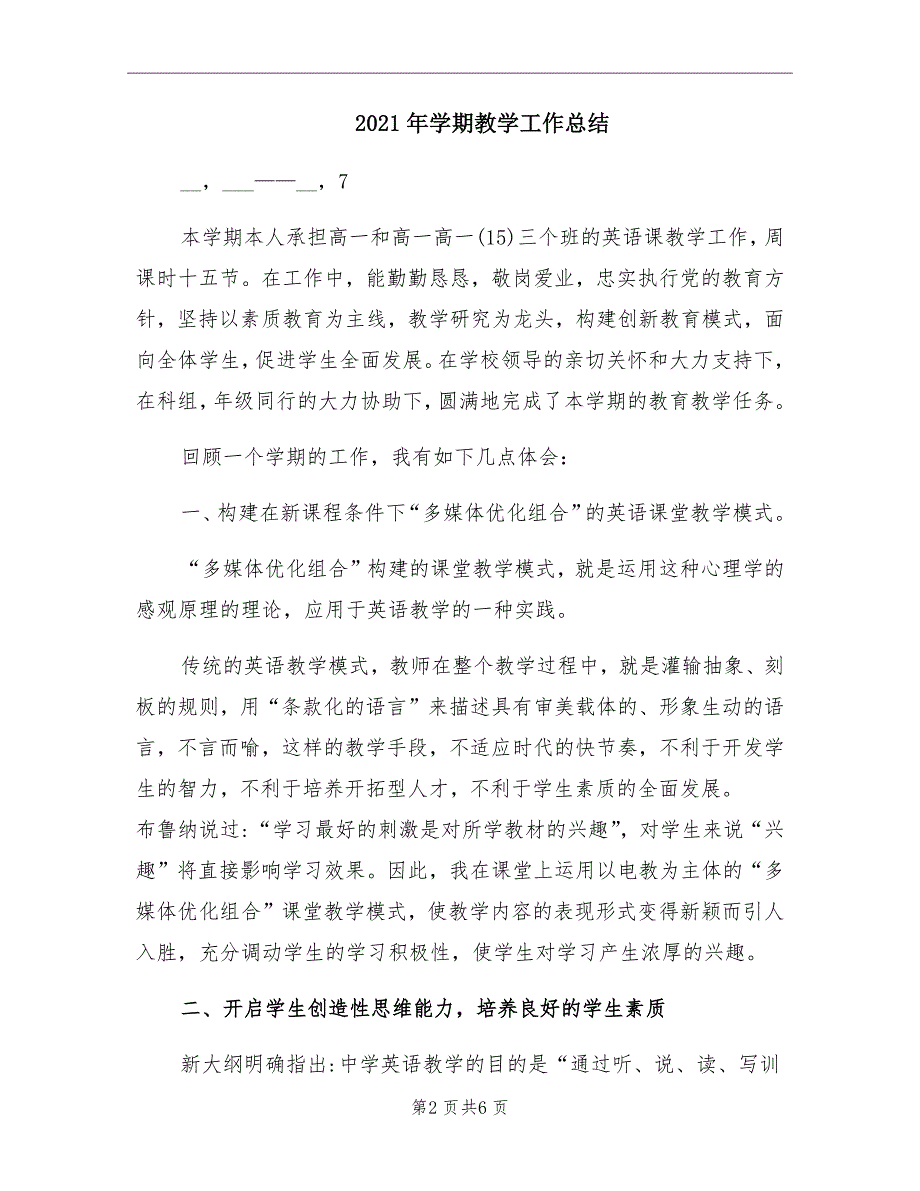 2021 年学期教学工作总结
__，___——__，7
本学期本人承担高一和高一高一(15)三个班的英语课教学工作，周
课时十五节。在工作中，能勤勤恳恳，敬岗爱业，忠实执行党的教育方
针，坚持以素质教育为主线，教学研究为龙头，构建创新教育模式，面
向全体学生，促进学生全面发展。在学校领导的亲切关怀和大力支持下，
在科组，年级同行的大力协助下，圆满地完成了本学期的教育教学任务。
回顾一个学期的工作，我有如下几点体会：
一、构建在新课程条件下“多媒体优化组合”的英语课堂教学模式。
“多媒体优化组合”构建的课堂教学模式，就是运用这种心理学的
感观原理的理论，应用于英语教学的一种实践。
传统的英语教学模式，教师在整个教学过程中，就是灌输抽象、刻
板的规则，用“条款化的语言”来描述具有审美载体的、形象生动的语
言，不言而喻，这样的教学手段，不适应时代的快节奏，不利于开发学
生的智力，不利于培养开拓型人才，不利于学生素质的全面发展。
布鲁纳说过：“学习最好的刺激是对所学教材的兴趣”，对学生来说“兴
趣”将直接影响学习效果。因此，我在课堂上运用以电教为主体的“多
媒体优化组合”课堂教学模式，使教学内容的表现形式变得新颖而引人
入胜，充分调动学生的学习积极性，使学生对学习产生浓厚的兴趣。
二、开启学生创造性思维能力，培养良好的学生素质
新大纲明确指出：中学英语教学的目的是“通过听、说、读、写训
第2 页共6 页